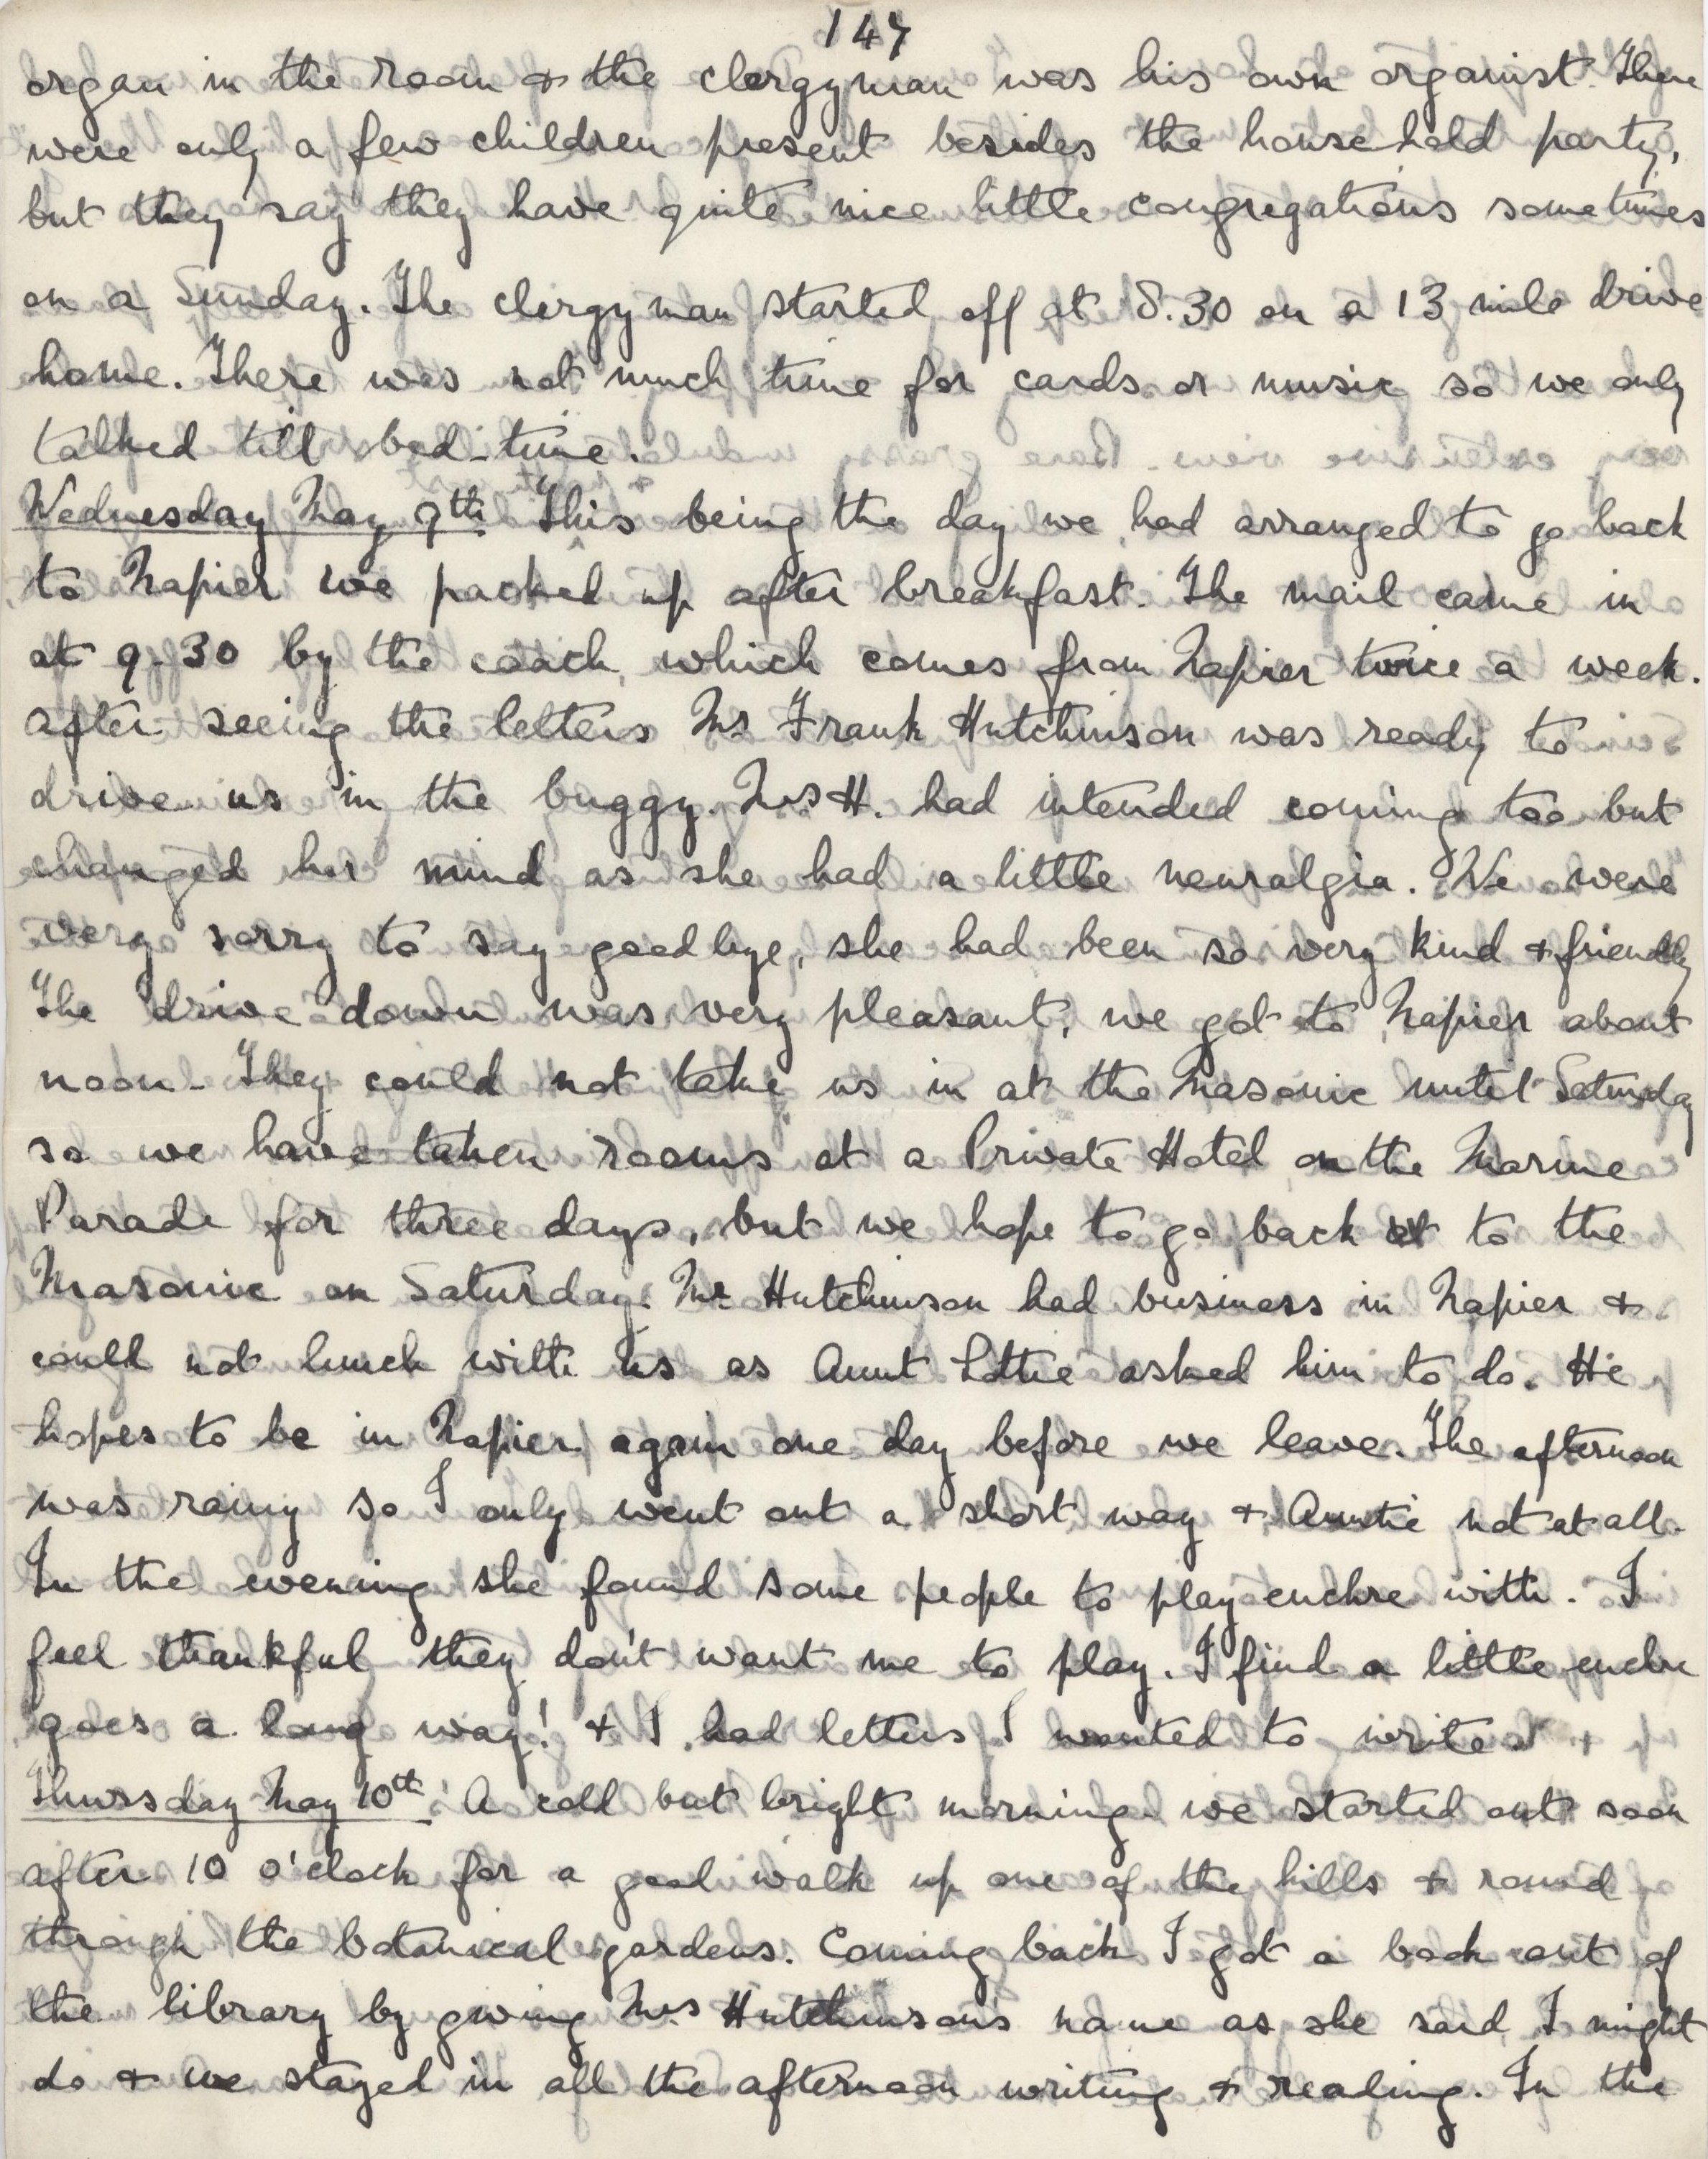 147
organ in the room & the clergyman was his own organist. There
were only a few children present besides the household party,
but they say they have quite nice little congregations sometimes
on a Sunday. The clergyman started off at 8.30 on a 13 mile drive
home. There was not much time for cards or music so we only
talked till bed-time.
Wednesday May 9th. This being the day we had arranged to go back
to Napier we packed up after breakfast. The mail came in
at 9.30 by the coach, which comes from Napier twice a week.
After seeing the letters Mr Frank Hutchinson was ready to
drive us in the buggy. Mrs H. had intended coming too but
changed her mind as she had a little neuralgia. We were
very sorry to say goodbye, she had been so very kind & friendly
The drive down was very pleasant, we got to Napier about
noon. They could not take us in at the Masonic until Saturday
so we have taken rooms at a Private Hotel on the Marine
Parade for three days, but we hope to go back to the
Masonic on Saturday. Mr Hutchinson had business in Napier &
could not lunch with us as Aunt Lottie asked him to do. He
hopes to be in Napier again one day before we leave. The afternoon
was rainy so I only went out a short way & Auntie not at all.
In the evening she found some people to play euchre with. I
feel thankful they don't want me to play. I find a little euchre
goes a long way! & I had letters I wanted to write.
Thursday May 10th. A cold but bright morning we started out soon
after 10 o'clock for a good walk up one of the hills & round
through the botanical gardens. Coming back I got a book out of
the library by giving Mrs Hutchinson's name as she said I might
do & we stayed in all the afternoon writing & reading. In the